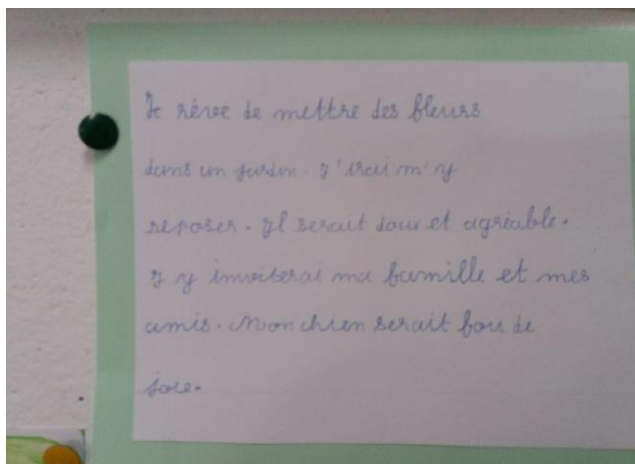 Je rêve de mettre des fleurs
dans un jardin. J'irai m'y
reposer. Il serait doux et agréable.
J'y inviterai ma famille et mes
amis. Mon chien serait fou de
joie.